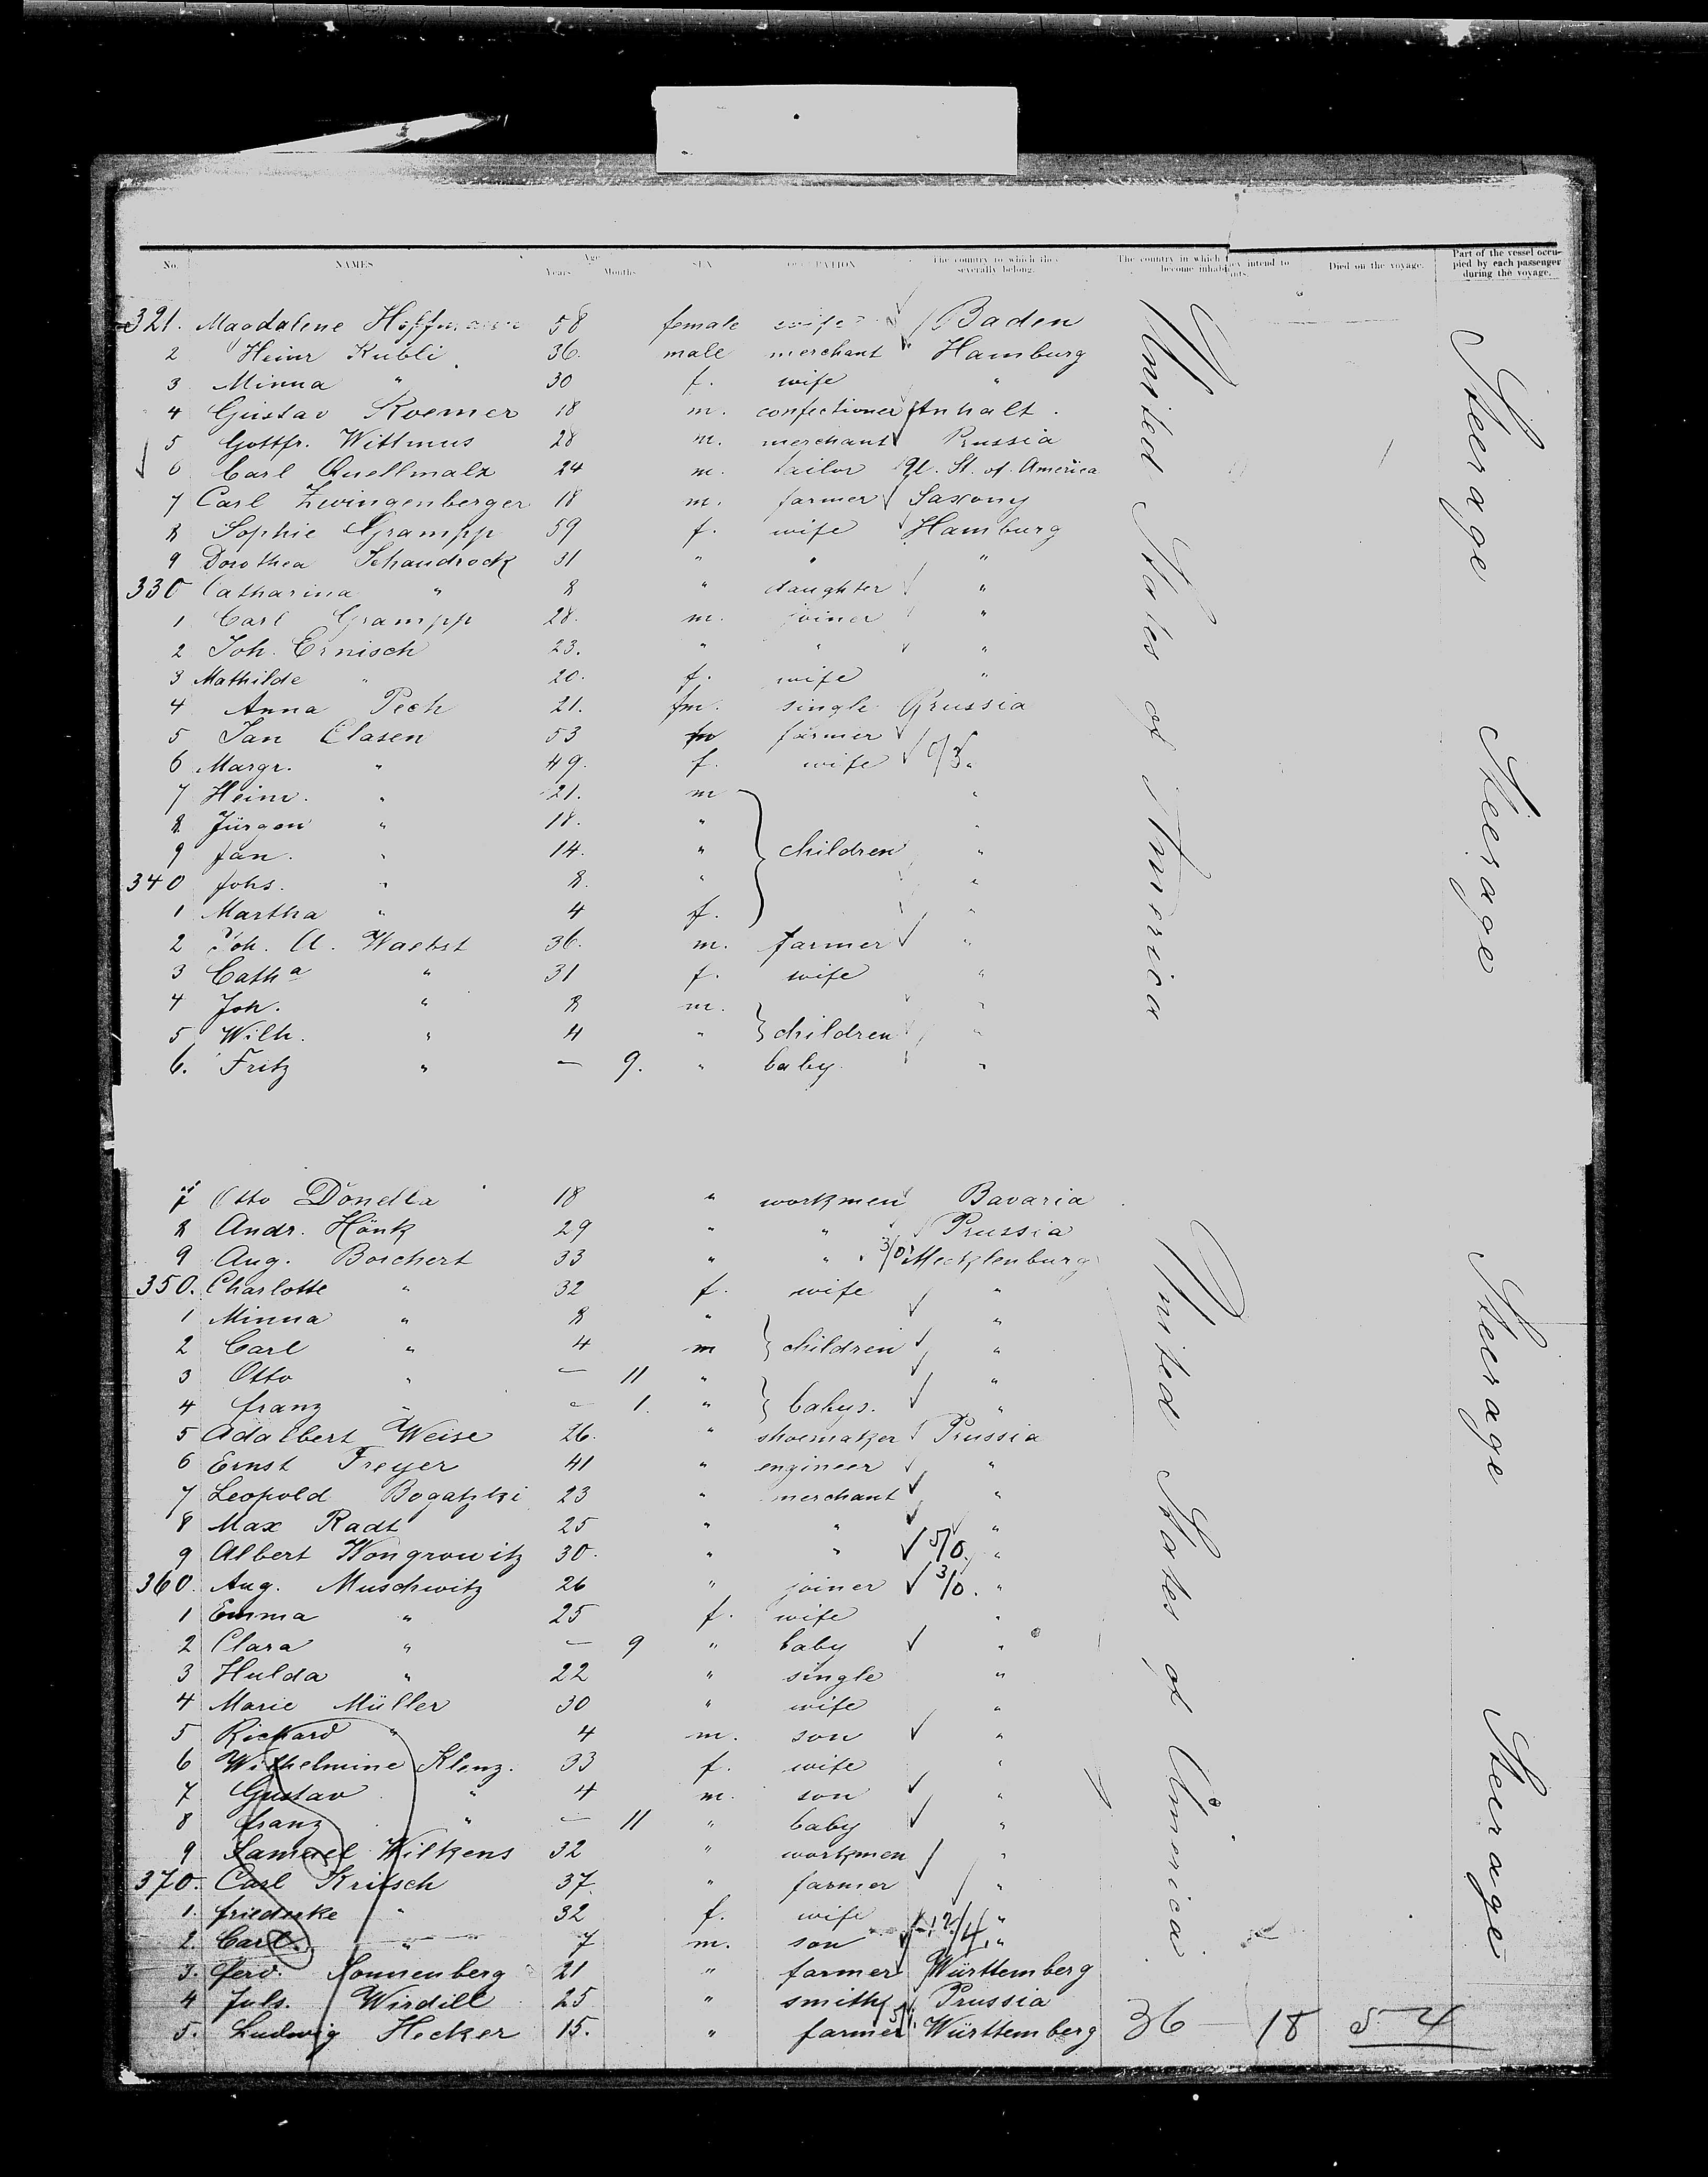 No. NAMES Age Years Months SEX OCCUPATION The country to which they severally belong. The country in which they intend to become inhabitants. Died on the voyage. Part of the vessel occupied by each passenger during the voyage.
321. Magdalene Hoffmann 58 female wife Baden
2 Heinr Kubli 36. male merchant Hamburg
3 Minna " 30 f. wife "
4 Gustav Roemer 18 m. confectioner Anhalt.
5 Gottfr. Wittmus 28 m. merchant Prussia
6 Carl Quellmalz 24 m. tailor U. St. of America
7 Carl Zwingenberger 18 m. farmer Saxony
8 Sophie Grampp 59 f. wife Hamburg
9 Dorothea Schaudrock 31 " " "
330 Catharina " 8 " daughter "
1 Carl Grampp 28. m. joiner "
2 Joh. Ernisch 23. " " "
3 Mathilde " 20. f. wife "
4 Anna Pech 21. fm. single Prussia
5 Jan Clasen 53 m farmer
6 Margr. " 49. f. wife "
7 Heinr. " 21. m "
8 Jürgen " 18. " "
9 Jan. " 14. " children "
340 Johs. " 8. " "
1 Martha " 4 f. "
2 Joh. A. Waebst 36. m. farmer "
3 Catha " 31 f. wife "
4 Joh. " 8 m. "
5 Wilh. " 4 " children "
6. Fritz " — 9. " baby "
7 Otto Donella 18 " workmen Bavaria
8 Andr. Hönk 29 " " Prussia
9 Aug. Borchert 33 " " 3/0 Mecklenburg
350. Charlotte " 32 f. wife "
1 Minna " 8 " "
2 Carl " 4 m children "
3 Otto " — 11 " "
4 franz " — 1. " babys. "
5 Adalbert Weise 26. " shoemaker Prussia
6 Ernst Freyer 41 " engineer "
7 Leopold Bogatzki 23 " merchant "
8 Max Radt 25 " " "
9 Albert Wongrowitz 30. " " 5/0. "
360. Aug. Muschwitz 26 " joiner 3/0. "
1 Emma " 25 f. wife "
2 Clara " — 9 " baby "
3 Hulda " 22 " single "
4 Marie Müller 30 " wife "
5 Richard " 4 m. son "
6 Wilhelmine Klenz. 33 f. wife "
7 Gustav " 4 m. son "
8 franz " — 11 " baby "
9 Samuel Wilkens 32 " workmen "
370. Carl Kritsch 37. " farmer "
1. friederke " 32 f. wife "
2. Carl. " 7 m. son 12/4 "
3. ferd. Sonnenberg 21 " farmer Württemberg
4 Juls. Wirdill 25 " smith Prussia
5. Ludwig Hecker 15. " farmer Württemberg 36 — 18 54
United States of America
United States of America
Steerage
Steerage
Steerage
Steerage